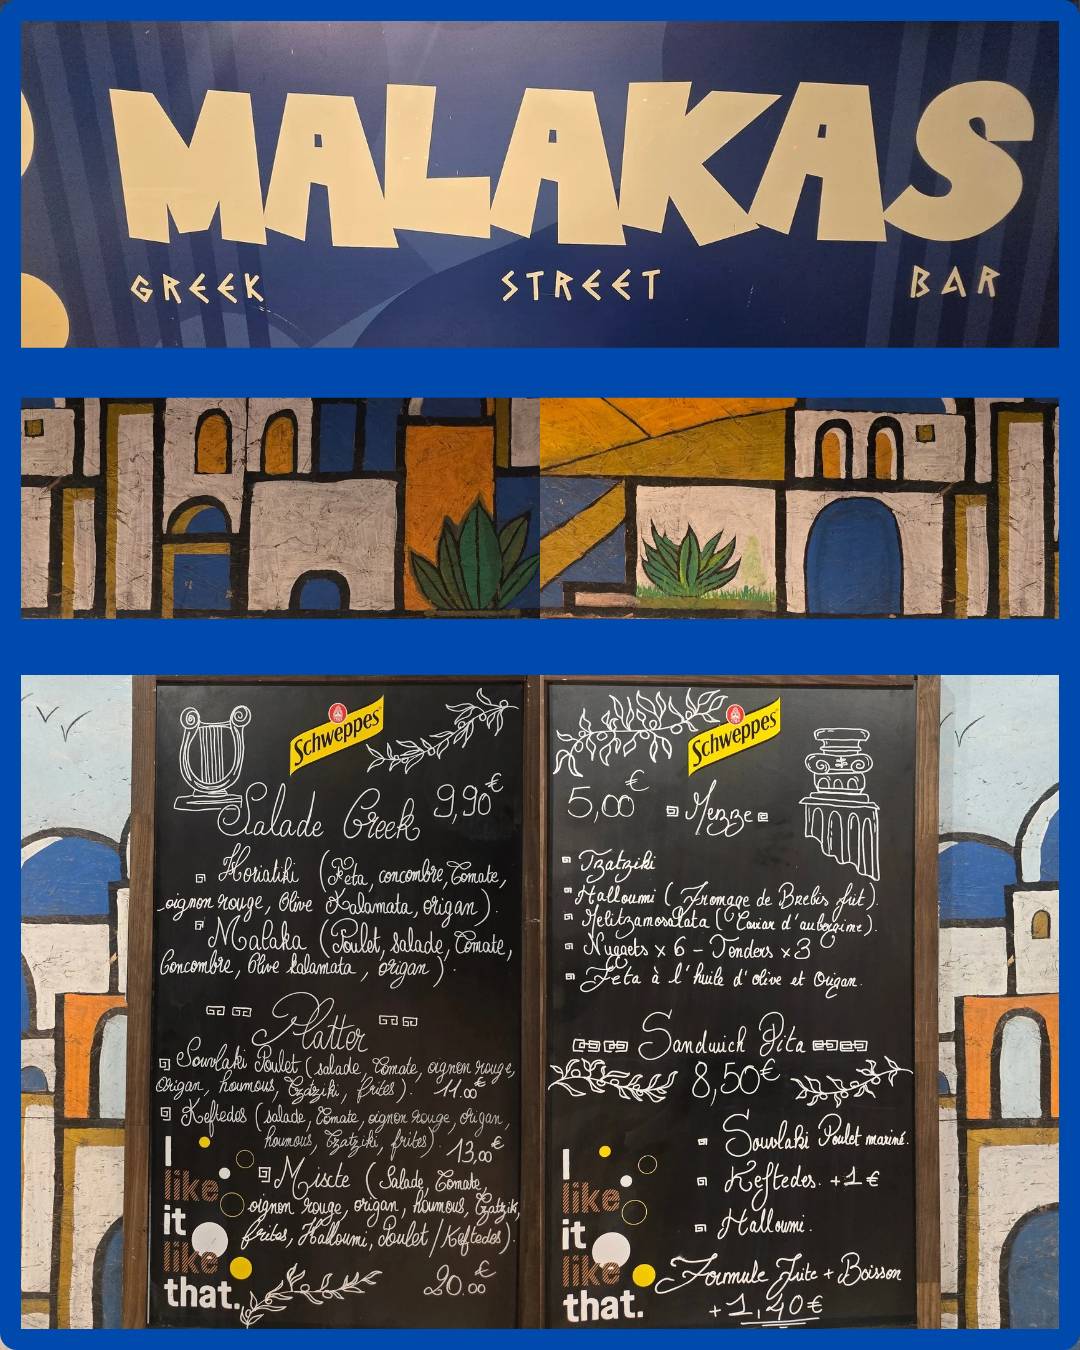 MALAKAS
GREEK STREET BAR
Schweppes
Salade Greek 9,90€
Horiatiki (Feta, concombre, Tomate,
oignon rouge, Olive Kalamata, origan).
Malaka (Poulet, salade, Tomate,
Concombre, Olive kalamata, origan).
Platter
Souvlaki Poulet (salade, Tomate, oignon rouge,
Origan, houmous, Tzdziki, frites). 11.00€
Keftedes (salade, Tomate, oignon rouge, origan,
houmous, Tzatziki, frites). 13,00€
Miscte (Salade, Tomate,
oignon rouge, origan, houmous, Tzatziki,
frites, Halloumi, Poulet/Keftedes).
20.00€
I
like
it
like
that.
Schweppes
5,00€ Mezze
Tzatziki
Halloumi (Fromage de Brebis frit).
Melitzanosalata (Caviar d'aubergine).
Nuggets x 6 - Tenders x3
Feta à l'huile d'olive et Origan.
Sandwich Pita
8,50€
Souvlaki Poulet mariné.
Keftedes. +1€
Halloumi.
Formule Frite + Boisson
+1,40€
I
like
it
like
that.